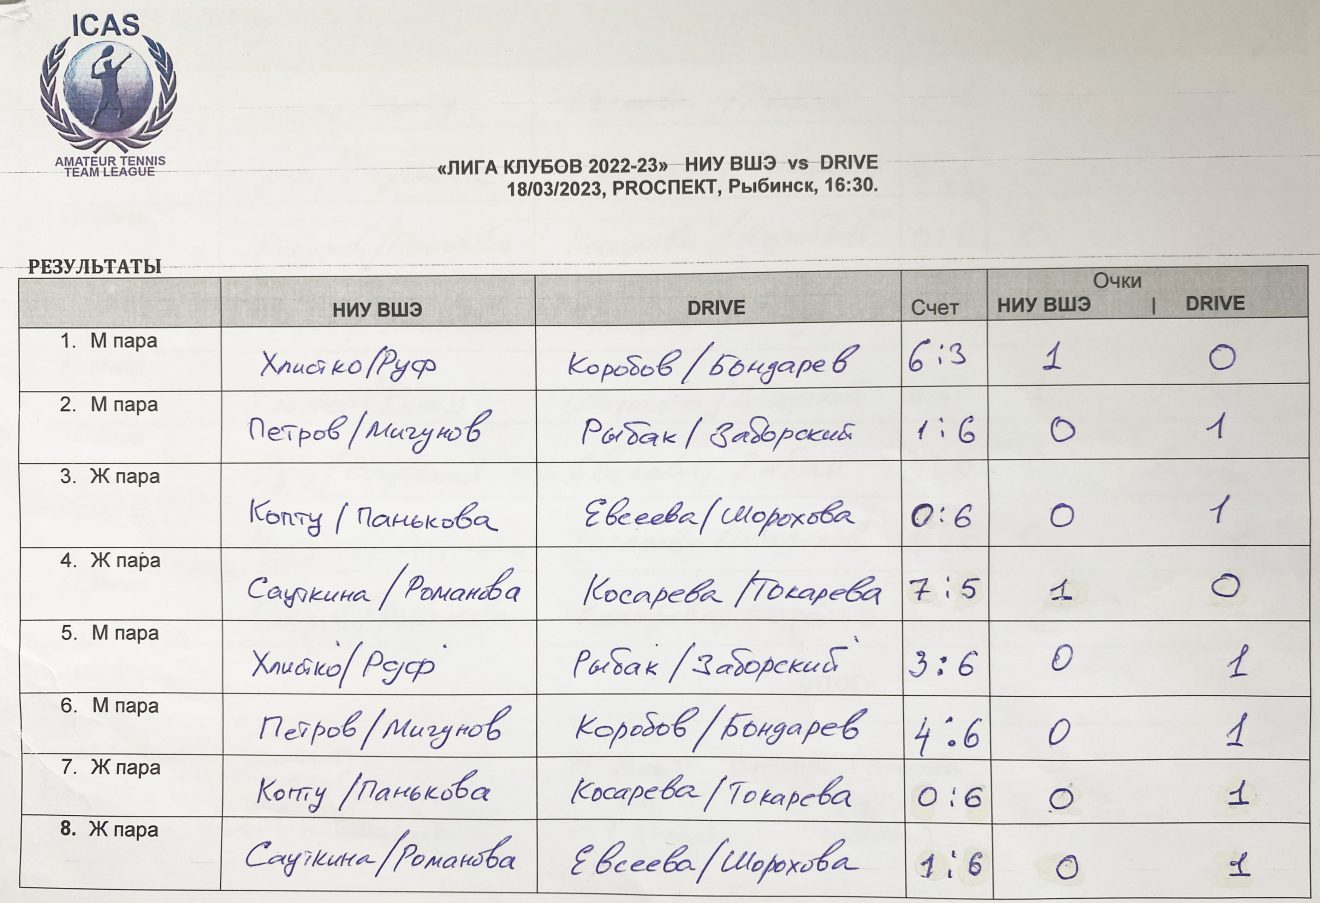 ICAS
AMATEUR TENNIS
TEAM LEAGUE
«ЛИГА КЛУБОВ 2022-23» НИУ ВШЭ vs DRIVE
18/03/2023, PROСПЕКТ, Рыбинск, 16:30.
РЕЗУЛЬТАТЫ
Очки
НИУ ВШЭ DRIVE Счет НИУ ВШЭ | DRIVE
1. М пара Хлистко/Руф Коробов/Бондарев 6:3 1 0
2. М пара Петров/Мигунов Рыбак/Заборский 1:6 0 1
3. Ж пара Копту/Панькова Евсеева/Шорохова 0:6 0 1
4. Ж пара Сауткина/Романова Косарева/Токарева 7:5 1 0
5. М пара Хлистко/Руф Рыбак/Заборский 3:6 0 1
6. М пара Петров/Мигунов Коробов/Бондарев 4:6 0 1
7. Ж пара Копту/Панькова Косарева/Токарева 0:6 0 1
8. Ж пара Сауткина/Романова Евсеева/Шорохова 1:6 0 1